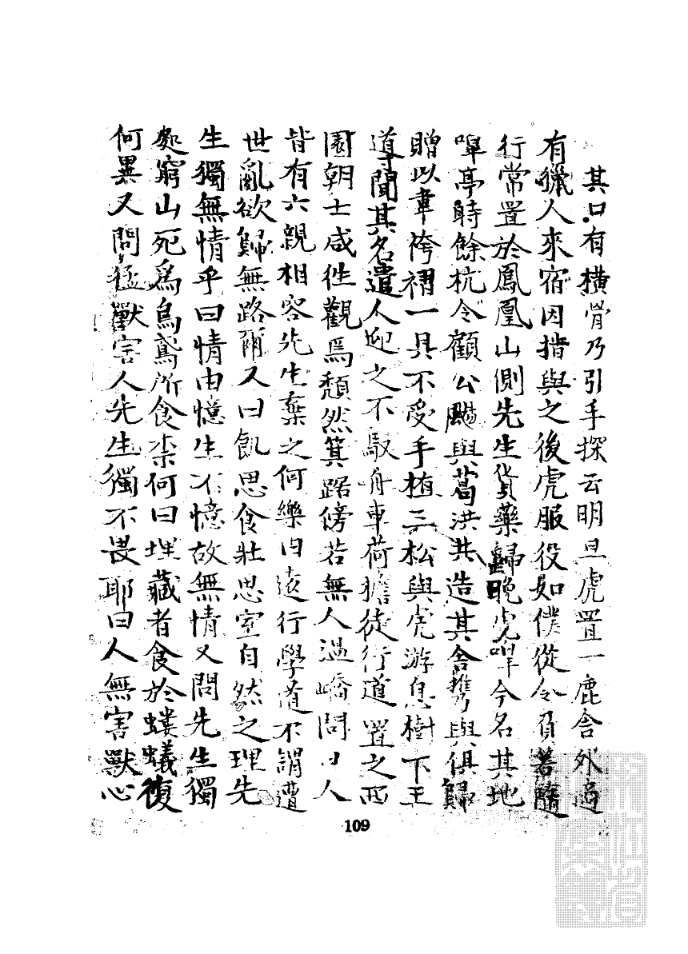 其口有横骨乃引手探云明旦虎置一鹿舍外適
有獵人來宿因指與之後虎服役如僕從令負箬隨
行常置於鳳凰山側先生貨藥歸晚虎嗥今名其地
嗥亭時餘杭令顧公颺與葛洪共造其舍携與俱歸
贈以韋袴褶一具不受手植三松與虎游息樹下王
導聞其名遣人迎之不馭舟車荷擔徒行道置之西
園朝士咸徃觀焉頹然箕踞傍若無人温嶠問曰人
皆有六親相容先生棄之何樂曰遠行學道不謂遭
世亂欲歸無路爾又曰飢思食壯思室自然之理先
生獨無情乎曰情由憶生不憶故無情又問先生獨
處窮山死爲烏鳶所食柰何曰埋藏者食於螻蟻復
何異又問猛獸害人先生獨不畏耶曰人無害獸心
109